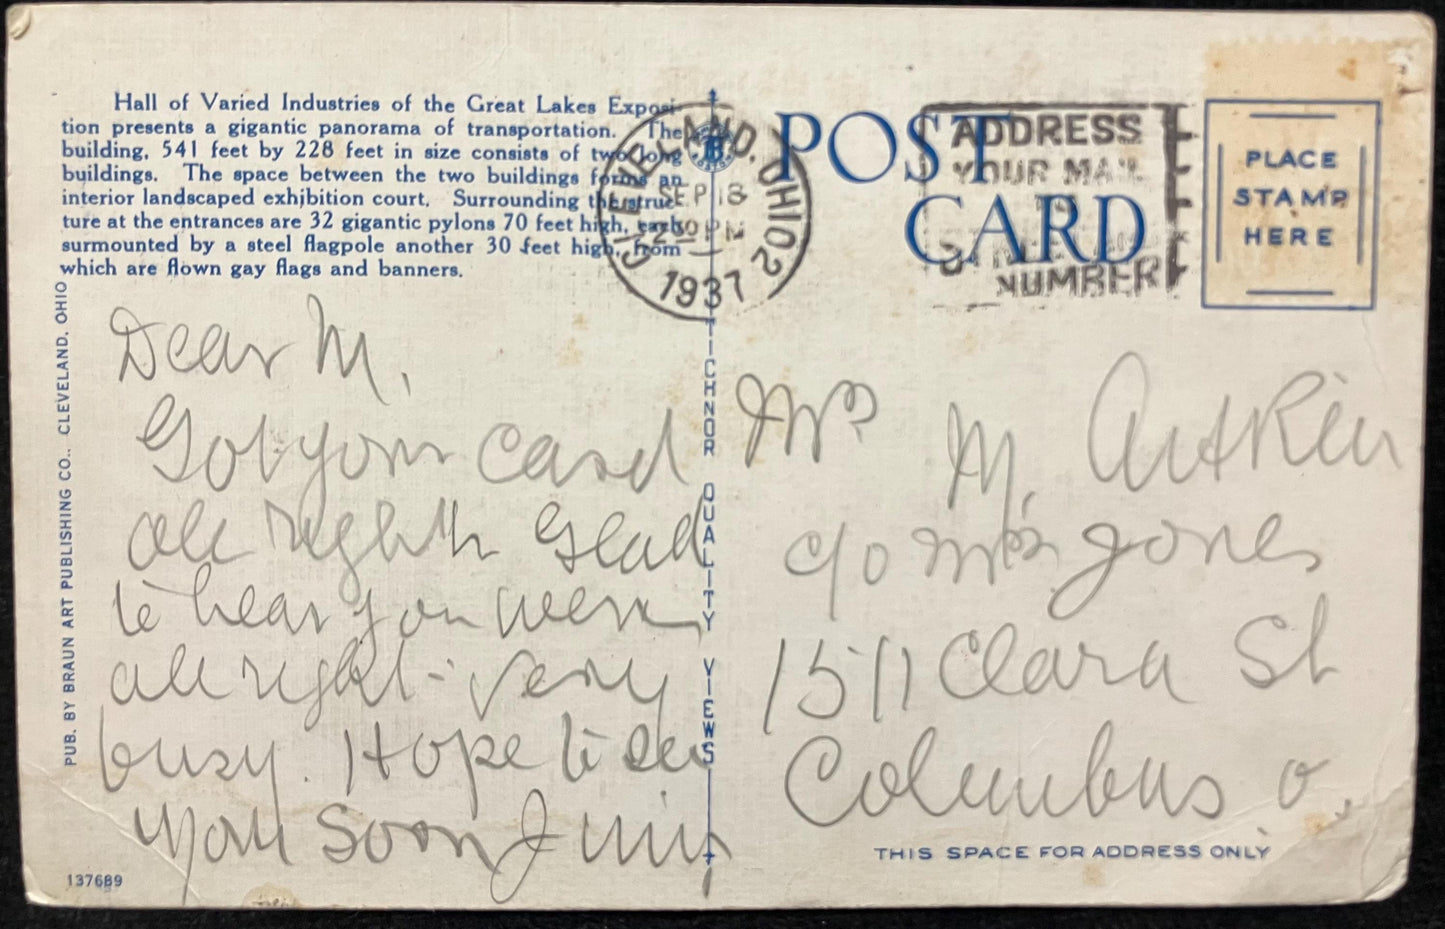 Hall of Varied Industries of the Great Lakes Exposi-
tion presents a gigantic panorama of transportation. The
building, 541 feet by 228 feet in size consists of two long
buildings. The space between the two buildings forms an
interior landscaped exhibition court. Surrounding the struc-
ture at the entrances are 32 gigantic pylons 70 feet high, each
surmounted by a steel flagpole another 30 feet high, from
which are flown gay flags and banners.
PUB. BY BRAUN ART PUBLISHING CO., CLEVELAND, OHIO
Dear M,
Got your card
all right Glad
to hear you were
all right - very
busy. Hope to see
you soon
137689
TICHNOR QUALITY VIEWS
CLEVELAND, OHIO 2
SEP 18
PM
1937
POST CARD
ADDRESS
YOUR MAIL
TO
STREET AND
NUMBER
PLACE
STAMP
HERE
Mrs M. Aitken
c/o Mrs Jones
1511 Clara St
Columbus O.
THIS SPACE FOR ADDRESS ONLY